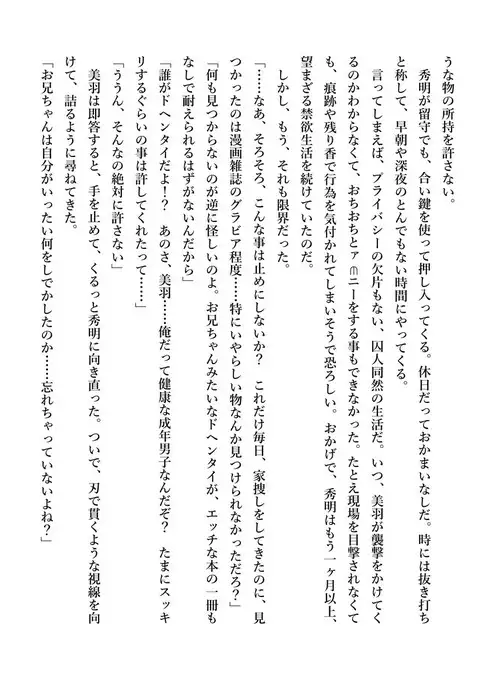 うな物の所持を許さない。
　秀明が留守でも、合い鍵を使って押し入ってくる。休日だっておかまいなしだ。時には抜き打ち
と称して、早朝や深夜のとんでもない時間にやってくる。
　言ってしまえば、プライバシーの欠片もない、囚人同然の生活だ。いつ、美羽が襲撃をかけてく
るのかわからなくて、おちおちとァ∃ニーをする事もできなかった。たとえ現場を目撃されなくて
も、痕跡や残り香で行為を気付かれてしまいそうで恐ろしい。おかげで、秀明はもう一ヶ月以上、
望まざる禁欲生活を続けていたのだ。
　しかし、もう、それも限界だった。
「……なあ、そろそろ、こんな事は止めにしないか？　これだけ毎日、家捜しをしてきたのに、見
つかったのは漫画雑誌のグラビア程度……特にいやらしい物なんか見つけられなかっただろ？」
「何も見つからないのが逆に怪しいのよ。お兄ちゃんみたいなドヘンタイが、エッチな本の一冊も
なしで耐えられるはずがないんだから」
「誰がドヘンタイだよ！？　あのさ、美羽……俺だって健康な成年男子なんだぞ？　たまにスッキ
リするぐらいの事は許してくれたって……」
「ううん、そんなの絶対に許さない」
　美羽は即答すると、手を止めて、くるっと秀明に向き直った。ついで、刃で貫くような視線を向
けて、詰るように尋ねてきた。
「お兄ちゃんは自分がいったい何をしでかしたのか……忘れちゃっていないよね？」